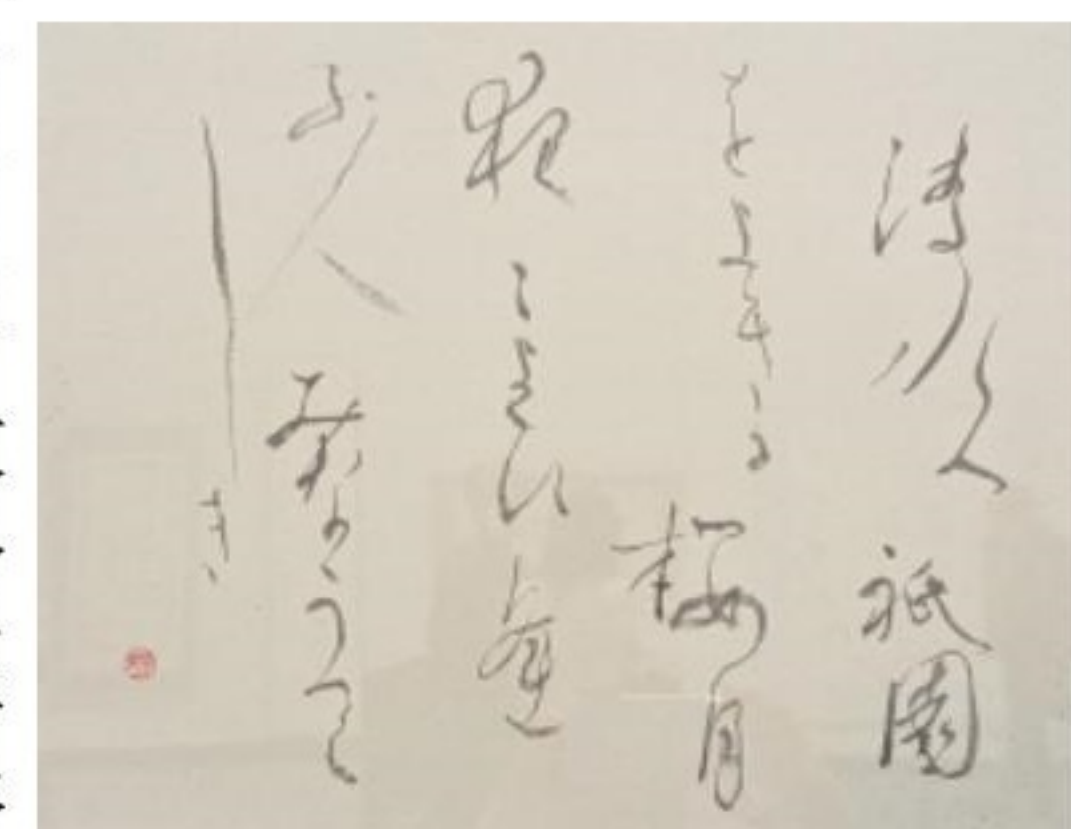 清水へ祇園
をよぎる桜月
夜こよひ逢
ふ人みなうつく
しき